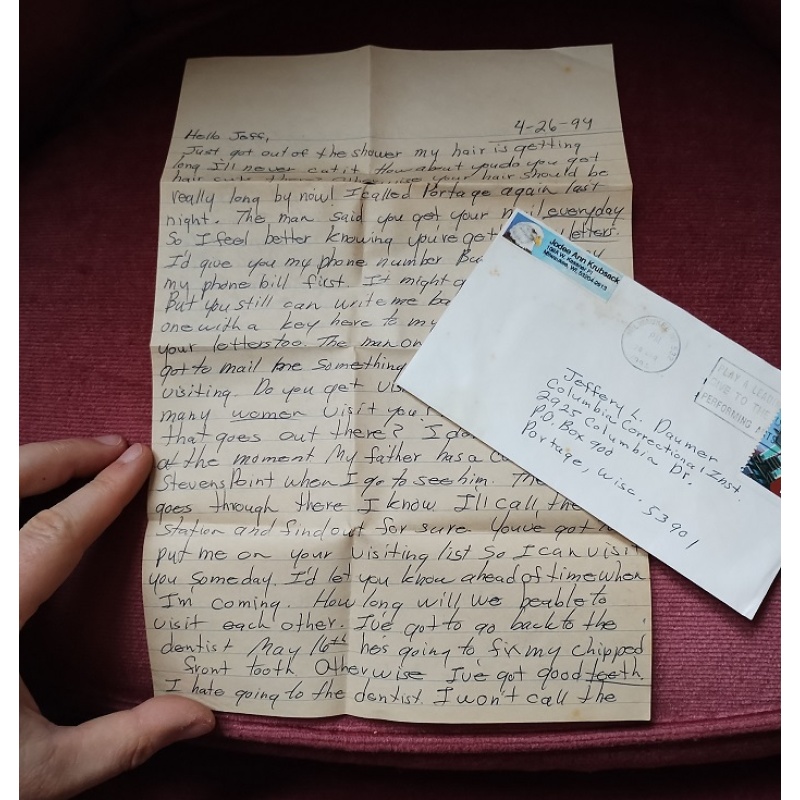 4-26-94
Hello Jeff,
Just got out of the shower my hair is getting
long I'll never cut it. How about you do you get
hair cuts there? Otherwise your hair should be
really long by now! I called Portage again last
night. The man said you get your mail everyday
So I feel better knowing you're get letters.
I'd give you my phone number Bu
my phone bill first. It might
But you still can write me ba
one with a key here to my
your letters too. The man on
got to mail me something
visiting. Do you get vis
many women visit you!
that goes out there? I do
at the moment My father has a c
Stevens Point when I go to see him. The
goes through there I know I'll call the
station and find out for sure. Youve got
put me on your visiting list So I can visit
you someday. I'd let you know ahead of time when
I'm coming. How long will we be able to
visit each other. I've got to go back to the
dentist May 16th he's going to fix my chipped
front tooth. Otherwise I've got good teeth.
I hate going to the dentist. I won't call the
Jodee Ann Krubsack
Milwaukee, WI
PLAY A LEAD
ING TO THE
PERFORMING ARTS
Jeffery L. Daumer
Columbia Correctional Inst.
2925 Columbia Dr.
P.O. Box 900
Portage, Wisc. 53901